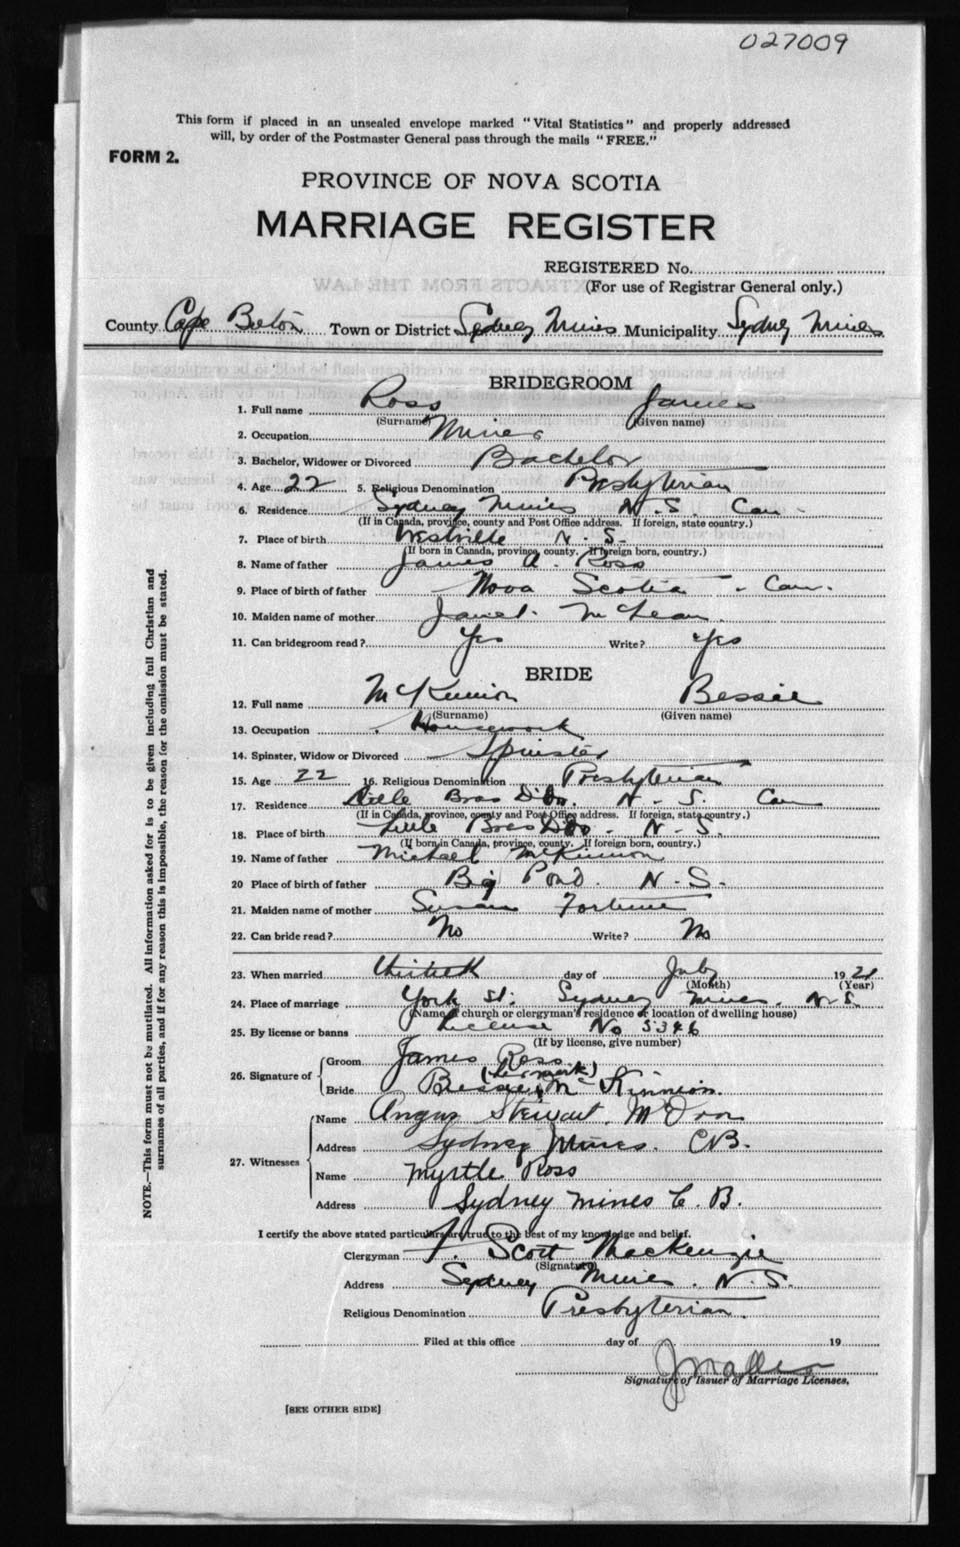 027009
This form if placed in an unsealed envelope marked "Vital Statistics" and properly addressed
will, by order of the Postmaster General pass through the mails "FREE."
FORM 2.
PROVINCE OF NOVA SCOTIA
MARRIAGE REGISTER
REGISTERED No.
(For use of Registrar General only.)
County Cape Breton Town or District Sydney Mines Municipality Sydney Mines
BRIDEGROOM
1. Full name Ross James
(Surname) (Given name)
2. Occupation Miner
3. Bachelor, Widower or Divorced Bachelor
4. Age 22 5. Religious Denomination Presbyterian
6. Residence Sydney Mines N.S. Can.
(If in Canada, province, county and Post Office address. If foreign, state country.)
7. Place of birth Westville N.S.
(If born in Canada, province, county. If foreign born, country.)
8. Name of father James A. Ross
9. Place of birth of father Nova Scotia - Can.
10. Maiden name of mother Janet McLean
11. Can bridegroom read? Yes Write? Yes
BRIDE
12. Full name McKinnon Bessie
(Surname) (Given name)
13. Occupation Housework
14. Spinster, Widow or Divorced Spinster
15. Age 22 16. Religious Denomination Presbyterian
17. Residence Little Bras D'Or. N-S. Can
(If in Canada, province, county and Post Office address. If foreign, state country.)
18. Place of birth Little Bras D'Or. N-S.
(If born in Canada, province, county. If foreign born, country.)
19. Name of father Michael McKinnon
20 Place of birth of father Big Pond. N-S.
21. Maiden name of mother Susan Fortune
22. Can bride read? No Write? No
23. When married day of July 1921
(Month) (Year)
24. Place of marriage York St. Sydney Mines. N-S.
(Name of church or clergyman's residence or location of dwelling house)
25. By license or banns License No 5346
(If by license, give number)
26. Signature of
Groom James Ross
(her mark)
Bride Bessie McKinnon.
27. Witnesses
Name Angus Stewart
Address Sydney Mines. C.B.
Name Myrtle Ross
Address Sydney Mines C.B.
I certify the above stated particulars are true to the best of my knowledge and belief.
Clergyman Scott MacKenzie
(Signature)
Address Sydney Mines. N.S.
Religious Denomination Presbyterian.
Filed at this office day of 19
Signature of Issuer of Marriage Licenses.
[SEE OTHER SIDE]
NOTE.—This form must not be mutilated. All information asked for is to be given including full Christian and
surnames of all parties, and if for any reason this is impossible, the reason for the omission must be stated.